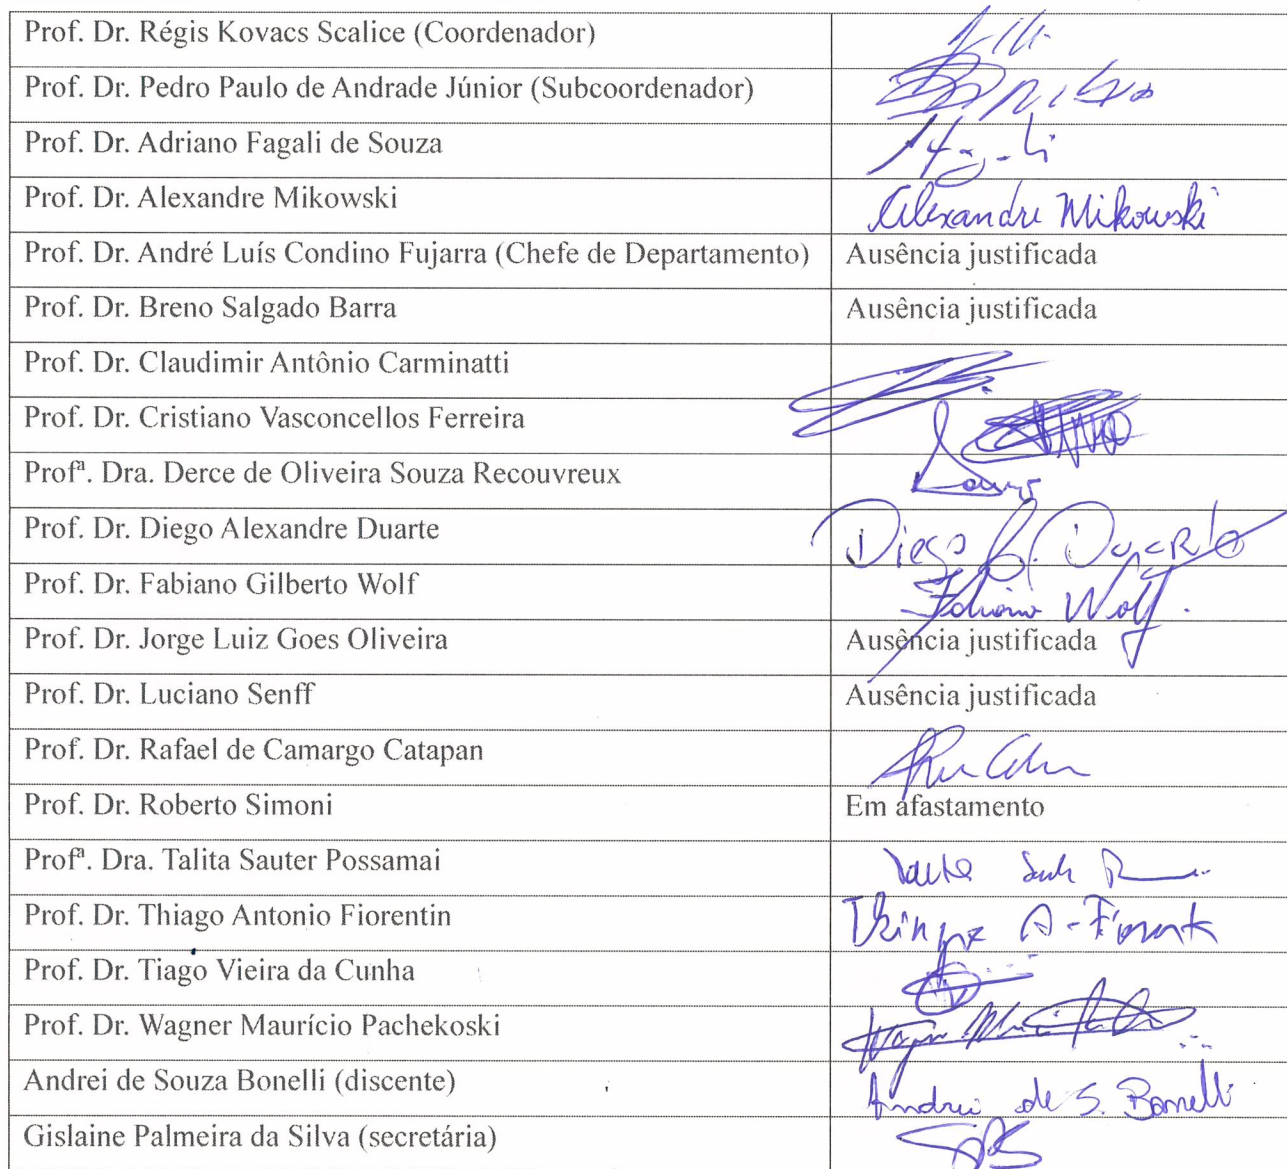 Prof. Dr. Régis Kovacs Scalice (Coordenador)
Prof. Dr. Pedro Paulo de Andrade Júnior (Subcoordenador)
Prof. Dr. Adriano Fagali de Souza
Prof. Dr. Alexandre Mikowski Alexandre Mikowski
Prof. Dr. André Luís Condino Fujarra (Chefe de Departamento) Ausência justificada
Prof. Dr. Breno Salgado Barra Ausência justificada
Prof. Dr. Claudimir Antônio Carminatti
Prof. Dr. Cristiano Vasconcellos Ferreira
Profª. Dra. Derce de Oliveira Souza Recouvreux
Prof. Dr. Diego Alexandre Duarte Diego A. Duarte
Prof. Dr. Fabiano Gilberto Wolf Fabiano Wolf
Prof. Dr. Jorge Luiz Goes Oliveira Ausência justificada
Prof. Dr. Luciano Senff Ausência justificada
Prof. Dr. Rafael de Camargo Catapan
Prof. Dr. Roberto Simoni Em afastamento
Profª. Dra. Talita Sauter Possamai
Prof. Dr. Thiago Antonio Fiorentin
Prof. Dr. Tiago Vieira da Cunha
Prof. Dr. Wagner Maurício Pachekoski
Andrei de Souza Bonelli (discente) Andrei de S. Bonelli
Gislaine Palmeira da Silva (secretária)